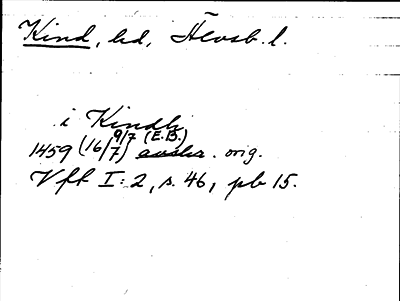 Kind, hd, Älvsb. l.
i Kindh
9/7 (E.B.)
1459 (16/7) avskr. orig.
Vff I:2, s. 46, pb 15.